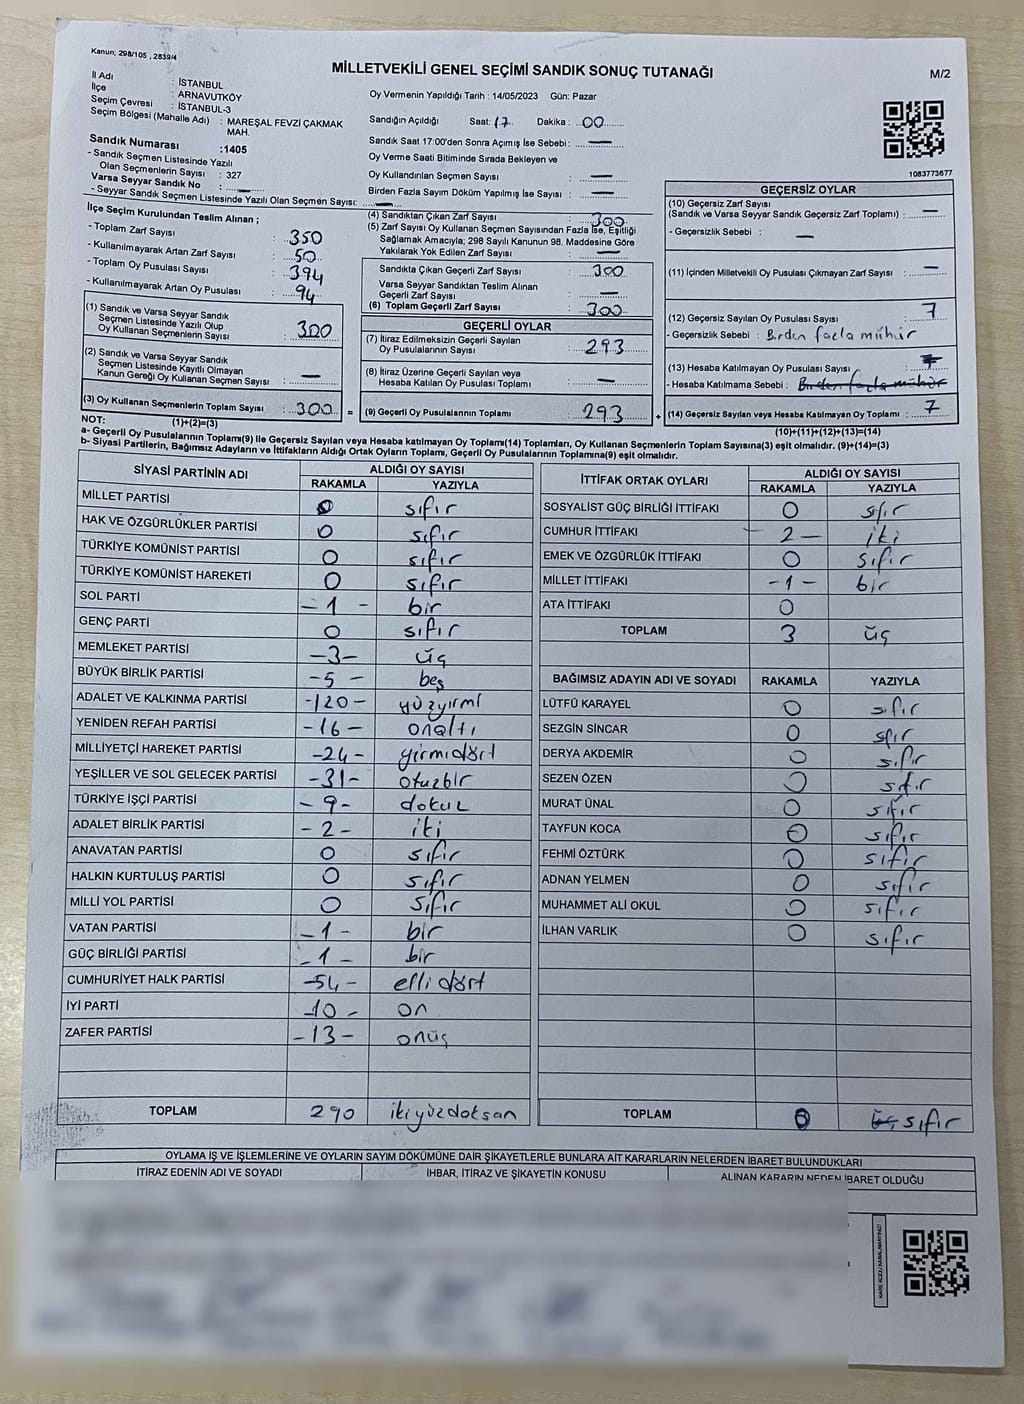 Kanun; 298/105 , 2839/4
MİLLETVEKİLİ GENEL SEÇİMİ SANDIK SONUÇ TUTANAĞI
M/2
İl Adı : İSTANBUL
İlçe : ARNAVUTKÖY
Seçim Çevresi : İSTANBUL-3
Seçim Bölgesi (Mahalle Adı) : MAREŞAL FEVZİ ÇAKMAK MAH.
Sandık Numarası :1405
- Sandık Seçmen Listesinde Yazılı
Olan Seçmenlerin Sayısı : 327
Varsa Seyyar Sandık No : —
- Seyyar Sandık Seçmen Listesinde Yazılı Olan Seçmen Sayısı: —
Oy Vermenin Yapıldığı Tarih : 14/05/2023 Gün: Pazar
Sandığın Açıldığı Saat: 17 Dakika : 00
Sandık Saat 17:00'den Sonra Açımış İse Sebebi : —
Oy Verme Saati Bitiminde Sırada Bekleyen ve
Oy Kullandırılan Seçmen Sayısı : —
Birden Fazla Sayım Döküm Yapılmış İse Sayısı : —
1083773677
İlçe Seçim Kurulundan Teslim Alınan ;
- Toplam Zarf Sayısı : 350
- Kullanılmayarak Artan Zarf Sayısı : 50
- Toplam Oy Pusulası Sayısı : 394
- Kullanılmayarak Artan Oy Pusulası : 94
(1) Sandık ve Varsa Seyyar Sandık
Seçmen Listesinde Yazılı Olup
Oy Kullanan Seçmenlerin Sayısı : 300
(2) Sandık ve Varsa Seyyar Sandık
Seçmen Listesinde Kayıtlı Olmayan
Kanun Gereği Oy Kullanan Seçmen Sayısı : —
(3) Oy Kullanan Seçmenlerin Toplam Sayısı : 300 =
(1)+(2)=(3)
(4) Sandıktan Çıkan Zarf Sayısı : 300
(5) Zarf Sayısı Oy Kullanan Seçmen Sayısından Fazla İse, Eşitliği
Sağlamak Amacıyla; 298 Sayılı Kanunun 98. Maddesine Göre
Yakılarak Yok Edilen Zarf Sayısı : —
Sandıkta Çıkan Geçerli Zarf Sayısı : 300
Varsa Seyyar Sandıktan Teslim Alınan
Geçerli Zarf Sayısı : —
(6) Toplam Geçerli Zarf Sayısı : 300
GEÇERLİ OYLAR
(7) İtiraz Edilmeksizin Geçerli Sayılan
Oy Pusulalarının Sayısı : 293
(8) İtiraz Üzerine Geçerli Sayılan veya
Hesaba Katılan Oy Pusulası Toplamı : —
(9) Geçerli Oy Pusulalarının Toplamı : 293 +
GEÇERSİZ OYLAR
(10) Geçersiz Zarf Sayısı
(Sandık ve Varsa Seyyar Sandık Geçersiz Zarf Toplamı) : —
- Geçersizlik Sebebi : —
(11) İçinden Milletvekili Oy Pusulası Çıkmayan Zarf Sayısı : —
(12) Geçersiz Sayılan Oy Pusulası Sayısı : 7
- Geçersizlik Sebebi : Birden fazla mühür
(13) Hesaba Katılmayan Oy Pusulası Sayısı : 7
- Hesaba Katılmama Sebebi : Birden fazla mühür
(14) Geçersiz Sayılan veya Hesaba Katılmayan Oy Toplamı : 7
(10)+(11)+(12)+(13)=(14)
NOT:
a- Geçerli Oy Pusulalarının Toplamı(9) ile Geçersiz Sayılan veya Hesaba katılmayan Oy Toplamı(14) Toplamları, Oy Kullanan Seçmenlerin Toplam Sayısına(3) eşit olmalıdır. (9)+(14)=(3)
b- Siyasi Partilerin, Bağımsız Adayların ve İttifakların Aldığı Ortak Oyların Toplamı, Geçerli Oy Pusulalarının Toplamına(9) eşit olmalıdır.
SİYASİ PARTİNİN ADI ALDIĞI OY SAYISI
RAKAMLA YAZIYLA
MİLLET PARTİSİ 0 sıfır
HAK VE ÖZGÜRLÜKLER PARTİSİ 0 sıfır
TÜRKİYE KOMÜNİST PARTİSİ 0 sıfır
TÜRKİYE KOMÜNİST HAREKETİ 0 sıfır
SOL PARTİ -1- bir
GENÇ PARTİ 0 sıfır
MEMLEKET PARTİSİ -3- üç
BÜYÜK BİRLİK PARTİSİ -5- beş
ADALET VE KALKINMA PARTİSİ -120- yüzyirmi
YENİDEN REFAH PARTİSİ -16- onaltı
MİLLİYETÇİ HAREKET PARTİSİ -24- yirmidört
YEŞİLLER VE SOL GELECEK PARTİSİ -31- otuzbir
TÜRKİYE İŞÇİ PARTİSİ -9- dokuz
ADALET BİRLİK PARTİSİ -2- iki
ANAVATAN PARTİSİ 0 sıfır
HALKIN KURTULUŞ PARTİSİ 0 sıfır
MİLLİ YOL PARTİSİ 0 sıfır
VATAN PARTİSİ -1- bir
GÜÇ BİRLİĞİ PARTİSİ -1- bir
CUMHURİYET HALK PARTİSİ -54- ellidört
İYİ PARTİ -10- on
ZAFER PARTİSİ -13- onüç
TOPLAM 290 ikiyüzdoksan
İTTİFAK ORTAK OYLARI ALDIĞI OY SAYISI
RAKAMLA YAZIYLA
SOSYALİST GÜÇ BİRLİĞİ İTTİFAKI 0 sıfır
CUMHUR İTTİFAKI -2- iki
EMEK VE ÖZGÜRLÜK İTTİFAKI 0 sıfır
MİLLET İTTİFAKI -1- bir
ATA İTTİFAKI 0
TOPLAM 3 üç
BAĞIMSIZ ADAYIN ADI VE SOYADI RAKAMLA YAZIYLA
LÜTFÜ KARAYEL 0 sıfır
SEZGİN SİNCAR 0 sıfır
DERYA AKDEMİR 0 sıfır
SEZEN ÖZEN 0 sıfır
MURAT ÜNAL 0 sıfır
TAYFUN KOCA 0 sıfır
FEHMİ ÖZTÜRK 0 sıfır
ADNAN YELMEN 0 sıfır
MUHAMMET ALİ OKUL 0 sıfır
İLHAN VARLIK 0 sıfır
TOPLAM 0 üç sıfır
OYLAMA İŞ VE İŞLEMLERİNE VE OYLARIN SAYIM DÖKÜMÜNE DAİR ŞİKAYETLERLE BUNLARA AİT KARARLARIN NELERDEN İBARET BULUNDUKLARI
İTİRAZ EDENİN ADI VE SOYADI İHBAR, İTİRAZ VE ŞİKAYETİN KONUSU ALINAN KARARIN NEDEN İBARET OLDUĞU
KARE KODU KARALAMAYINIZ!